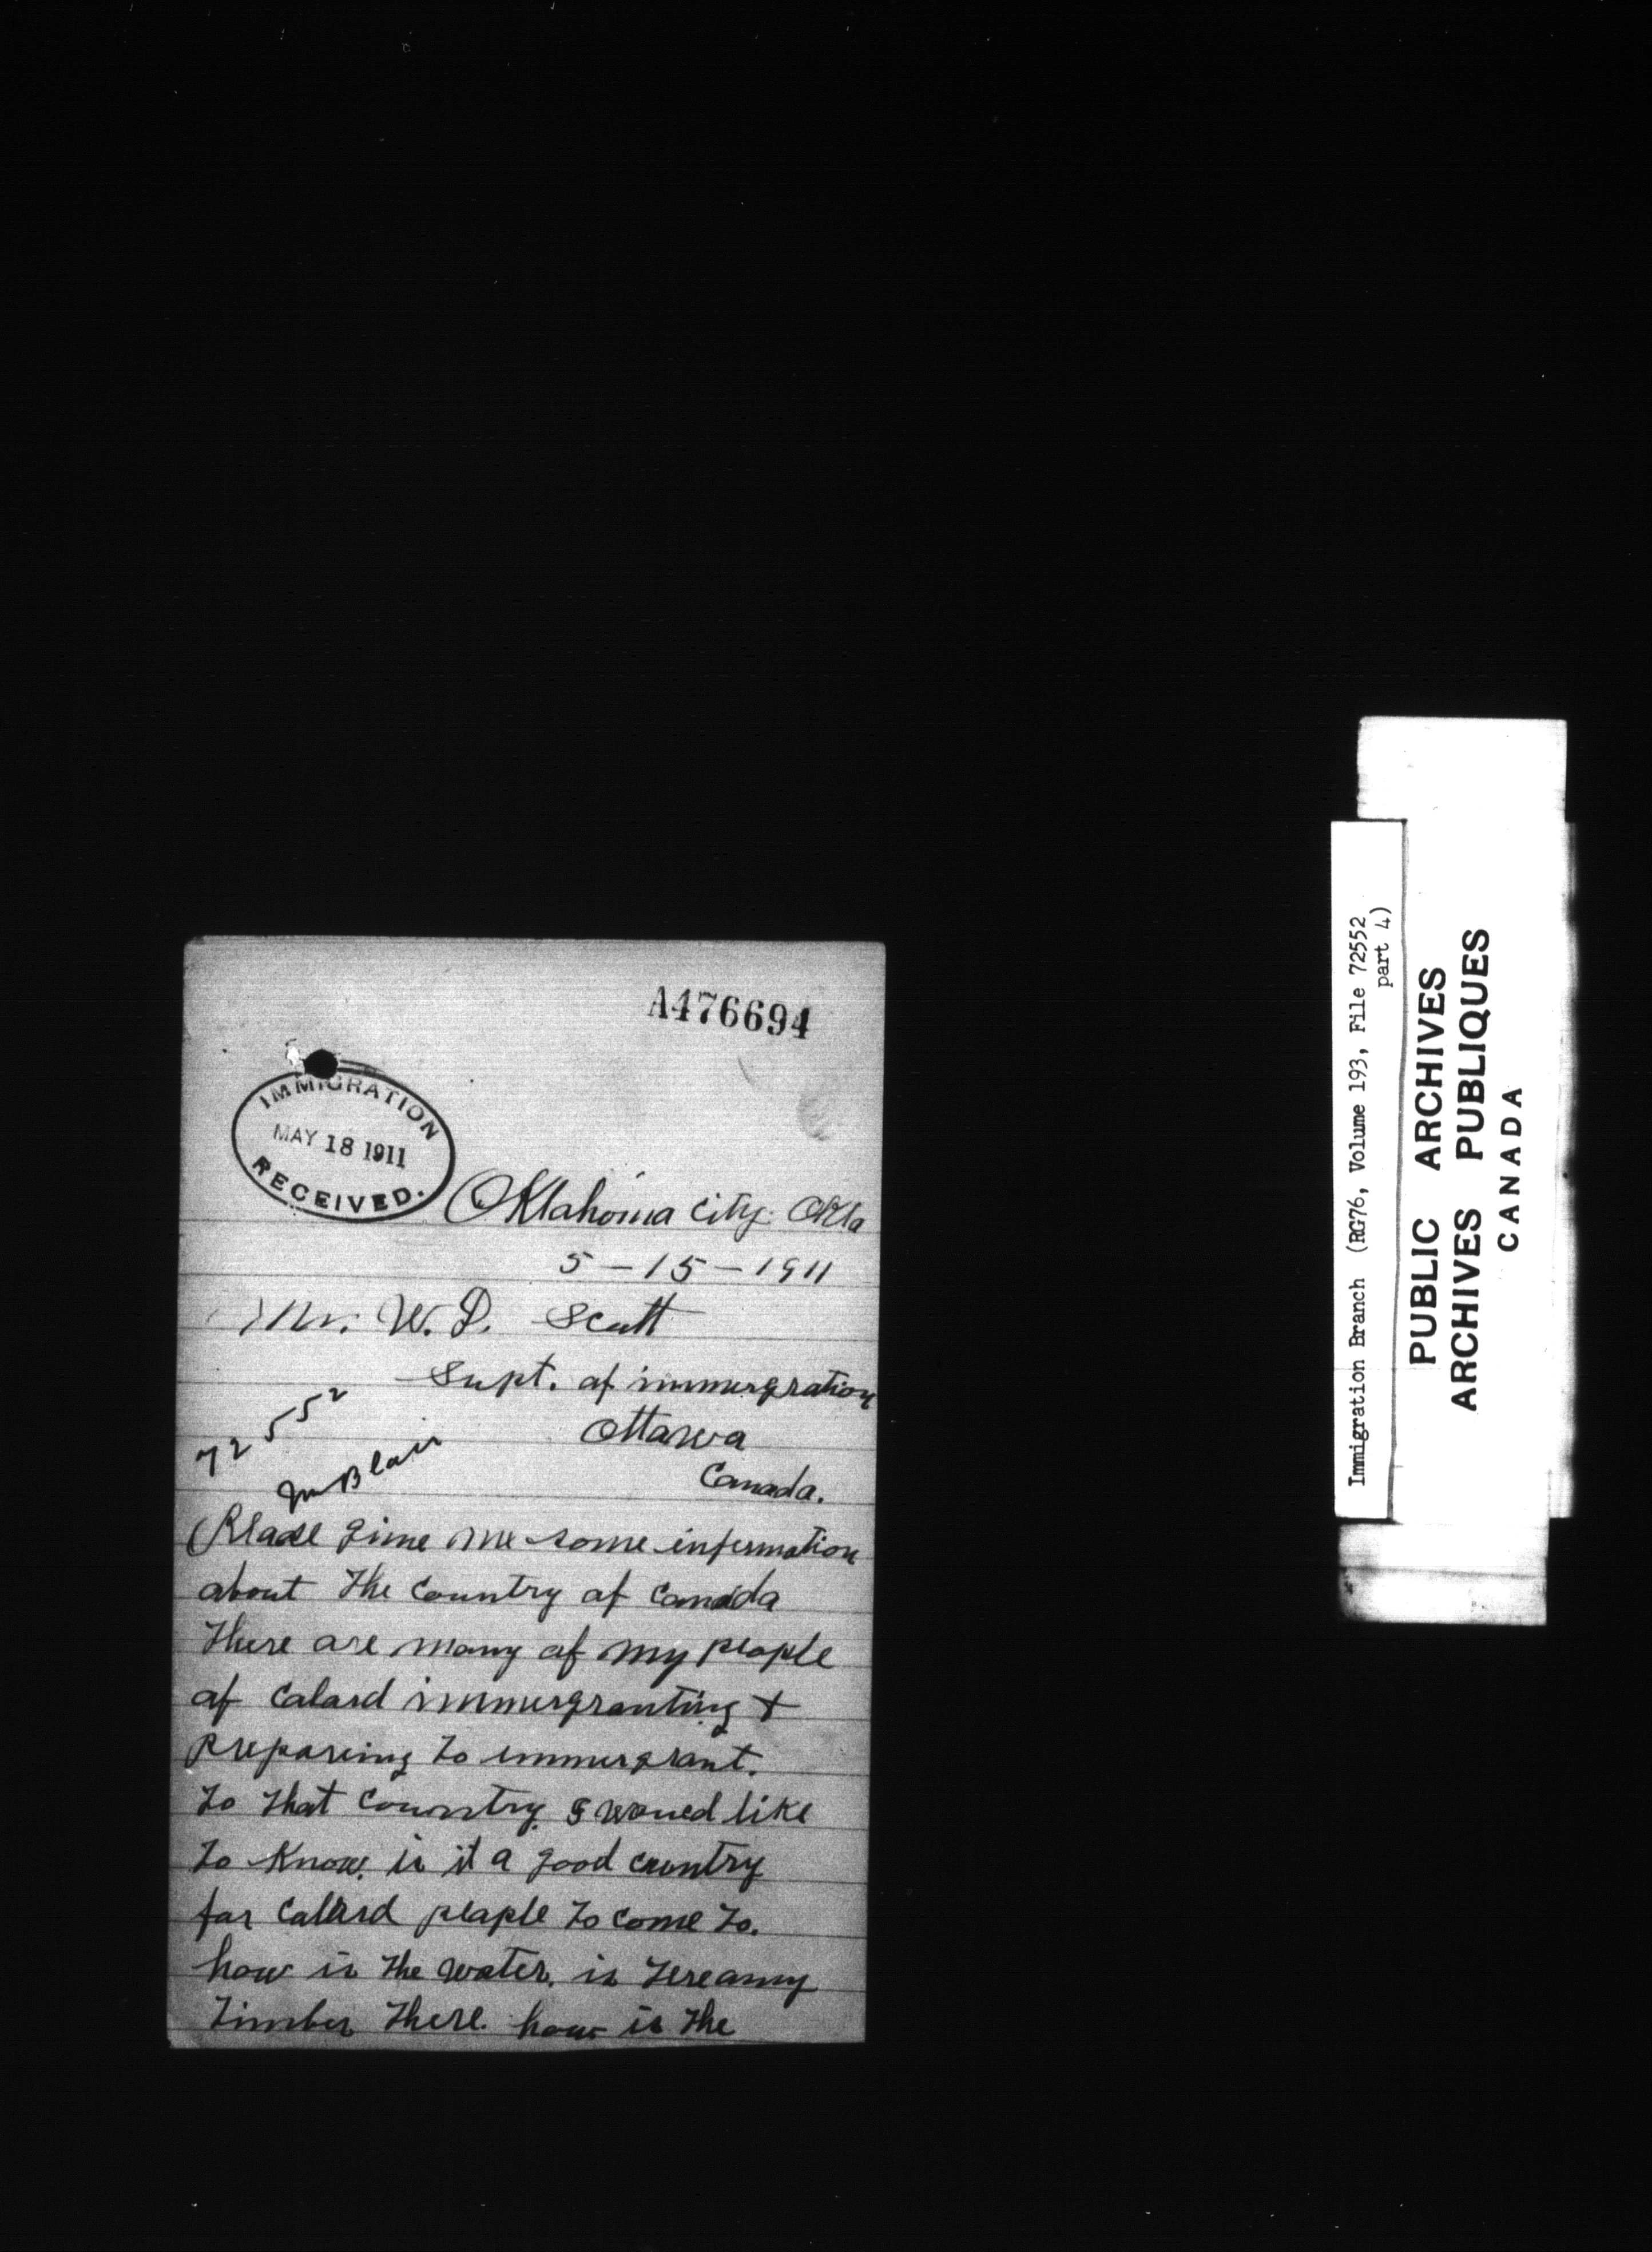 A476694
IMMIGRATION
MAY 18 1911
RECEIVED.
Oklahoma City. Okla
5-15-1911
Mr. W.D. Scott
Supt. of immergration
Ottawa
Canada.
72552
Mr Blair
Please give me some information
about the Country of Canada
there are many of my people
of Colard immergranting +
Prepareing to immergrant.
to that Country. I woued like
to Know. is it a good country
for Colard people to come to.
how is the water. is tere any
timber there. how is the
Immigration Branch (RG76, Volume 193, File 72552
part 4)
PUBLIC ARCHIVES
ARCHIVES PUBLIQUES
CANADA